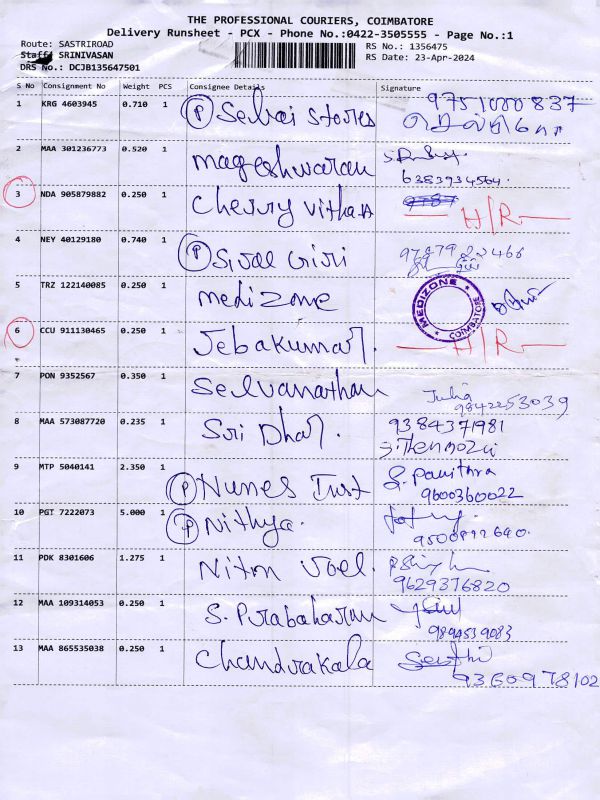 THE PROFESSIONAL COURIERS, COIMBATORE
Delivery Runsheet - PCX - Phone No.:0422-3505555 - Page No.:1
Route: SASTRIROAD
RS No.: 1356475
Staff: SRINIVASAN
RS Date: 23-Apr-2024
DRS No.: DCJB135647501
S No Consignment No Weight PCS Consignee Details Signature
1 KRG 4603945 0.710 1 (P) Selvai Stores 9751000837
2 MAA 301236773 0.520 1 mageshwaran
6383934564.
3 NDA 905879882 0.250 1 Cherry Vitha A H/R
4 NEY 40129180 0.740 1 (P) Sival Giri
5 TRZ 122140085 0.250 1 medizone MEDIZONE COIMBATORE
6 CCU 911130465 0.250 1 Jebakumar. H/R
7 PON 9352567 0.350 1 Selvanathan Julia
9842253039
8 MAA 573087720 0.235 1 Sri Dhar. 9384371981
S. Thenmozhi
9 MTP 5040141 2.350 1 (P) Nunes Trust S. Pavithra
9600360022
10 PGT 7222073 5.000 1 (P) Nithya.
11 PDK 8301606 1.275 1 Niton Joel.
9629376820
12 MAA 109314053 0.250 1 S. Prabaharan
9894539083
13 MAA 865535038 0.250 1 Chandrakala
9360978102